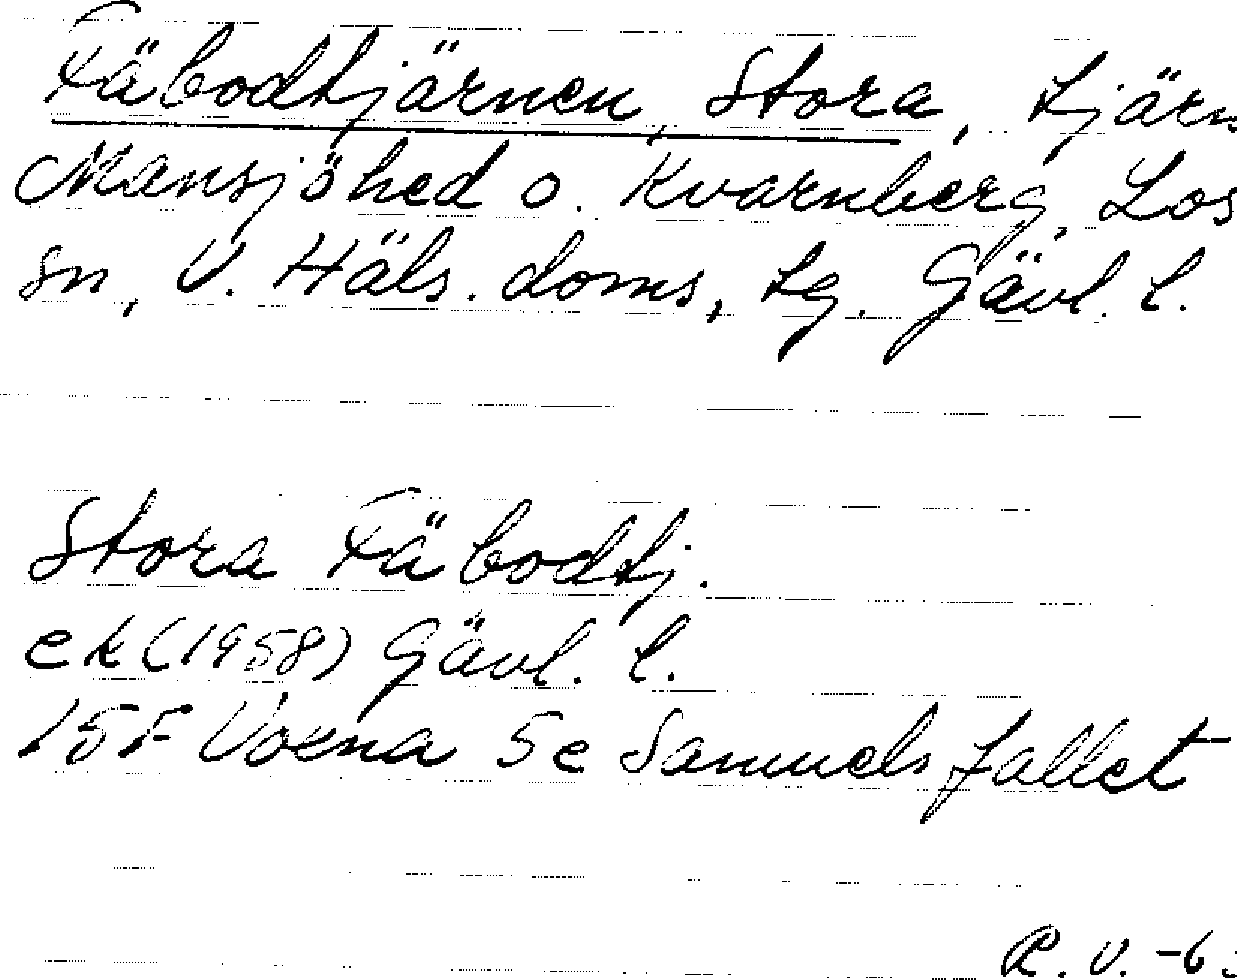 Fäbodtjärnen, Stora, tjärn
Mansjöhed o. Kvarnberg, Los
sn, V. Häls. doms, tg. Gävl. l.
Stora Fäbodtj.
ek (1958) Gävl. l.
15F Voxna 5e Samuelsfallet
R. V. -6